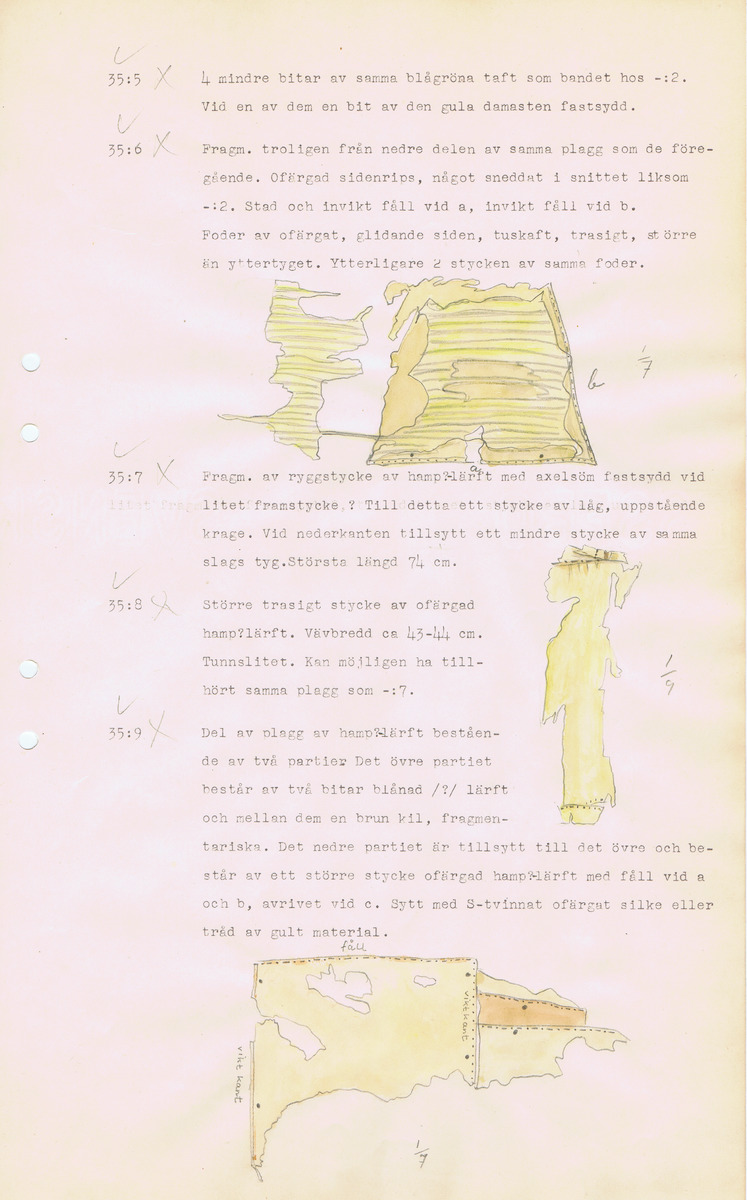 35:5 4 mindre bitar av samma blågröna taft som bandet hos -:2.
Vid en av dem en bit av den gula damasten fastsydd.
35:6 Fragm. troligen från nedre delen av samma plagg som de före-
gående. Ofärgad sidenrips, något sneddat i snittet liksom
-:2. Stad och invikt fåll vid a, invikt fåll vid b.
Foder av ofärgat, glidande siden, tuskaft, trasigt, större
än yttertyget. Ytterligare 2 stycken av samma foder.
1/7
b
a
35:7 Fragm. av ryggstycke av hamp?-lärft med axelsöm fastsydd vid
litet framstycke,? Till detta ett stycke av låg, uppstående
krage. Vid nederkanten tillsytt ett mindre stycke av samma
slags tyg.Största längd 74 cm.
35:8 Större trasigt stycke av ofärgad
hamp?lärft. Vävbredd ca 43-44 cm.
Tunnslitet. Kan möjligen ha till-
hört samma plagg som -:7.
1/9
35:9 Del av plagg av hamp?-lärft beståen-
de av två partier Det övre partiet
består av två bitar blånad /?/ lärft
och mellan dem en brun kil, fragmen-
tariska. Det nedre partiet är tillsytt till det övre och be-
står av ett större stycke ofärgad hamp?-lärft med fåll vid a
och b, avrivet vid c. Sytt med S-tvinnat ofärgat silke eller
tråd av gult material.
fåll
vikt kant
vikt kant
1/7